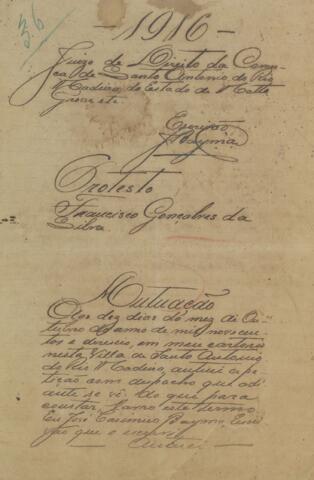 36
-1916-
Juizo de Direito da Comar-
ca de Santo Antonio do Rio
Madeira do Estado de Matto
Grosso etc
Escrivão
Bayma
Protesto
Francisco Gonçalves da
Silva
Autuação
Aos dez dias do mez de Ou-
tubro do anno de mil novecen-
tos e deseseis, em meu cartorio
nesta Villa de Santo Antonio
do Rio Madeira, autuei a pe-
tição com despacho que adi-
ante se vê. Do que para
constar, lavro este termo
Eu José Casimiro Bayma, Escri-
vão que o escrevi
Autuei